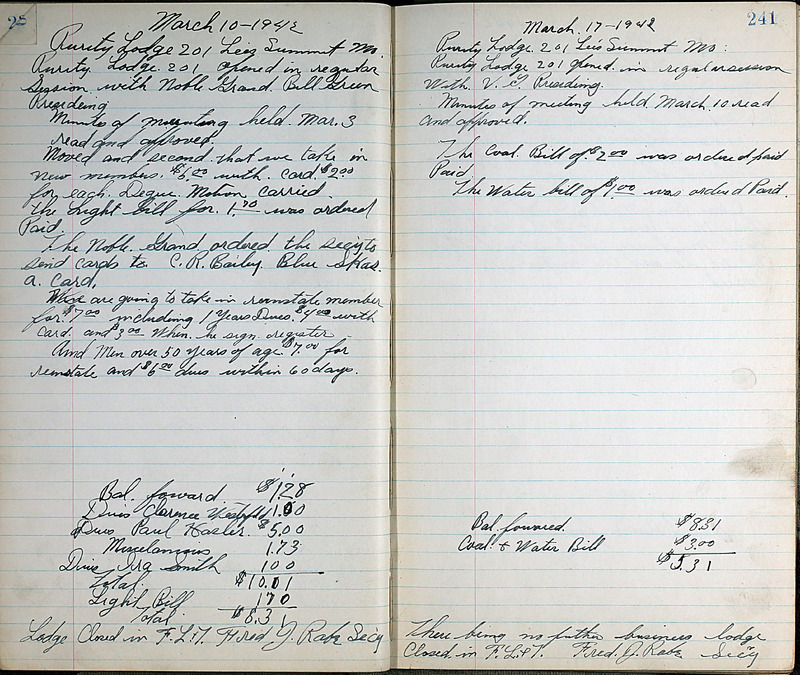 25
March 10-1942
Purity Lodge 201 Lees Summit Mo.
Purity. Lodge. 201 opened in regular
Session with Noble Grand. Bill Green
Presideing
Minutes of meeting held. Mar. 3
read and approved.
Moved and second that we take in
New members. $6.00 with. Card. $2.00
for each. Degree. Motion Carried.
the Light bill for. 1.70 was ordered
Paid.
The Noble. Grand ordered the secy to
send cards to. C. R. Bailey. Blue
a. Card.
are going to take in reinstate member
for $7.00 including 1 Years Dues. $4.00 with
Card. and $3.00 When. he sign. register
And Men over 50 years of age $7.00 for
reinstate and $6.00 dues within 60 days.
Bal. foward $1.28
Dues Clarence 1.00
Dues Paul $5.00
Miscelanious 1.73
Dues Ira Smith 100
total. $10.01
Light Bill 170
total $8.31
Lodge Closed in F. L. & T. Fred J. Rabe Sec'y
241
March. 17-1942
Purity Lodge. 201 Lees Summit Mo:
Purity Lodge 201 Opened. in regular session
With. V. G. Presiding.
Minutes of meeting held March. 10 read
and approved.
The Coal Bill of $2.00 was ordered paid
Paid
The Water bill of $1.00 was ordered Paid.
Bal. forward. $8.31
Coal. & Water Bill $3.00
$5.31
There being no futher business lodge
Closed. in F. L. & T. Fred. J. Rabe Sec'y